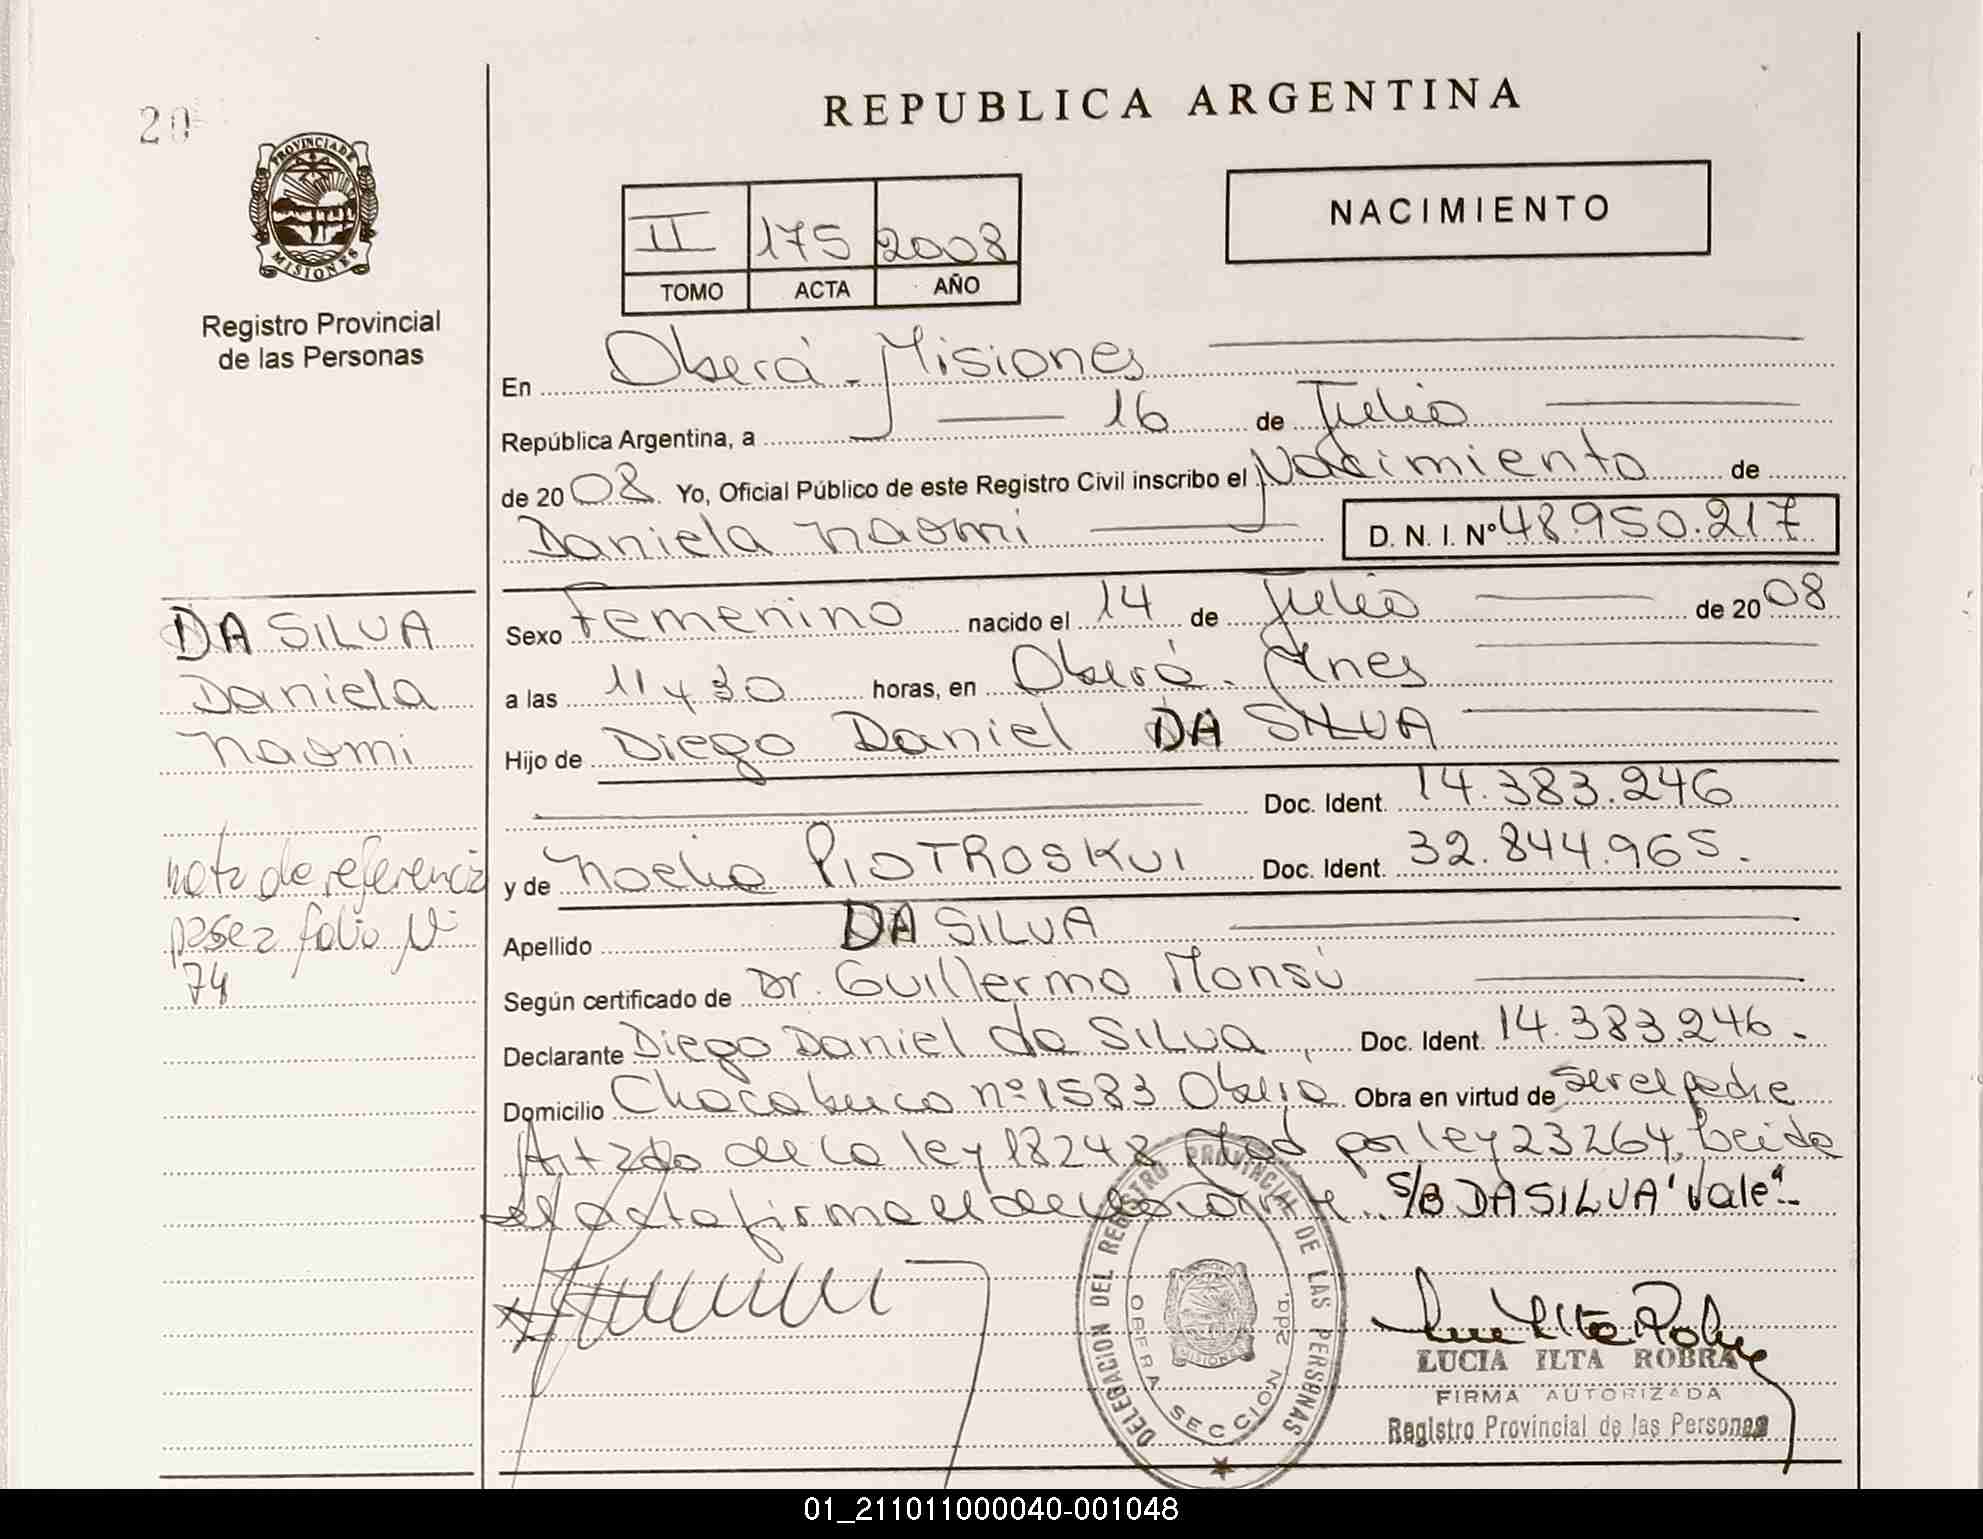 20
PROVINCIA DE
MISIONES
Registro Provincial
de las Personas
REPUBLICA ARGENTINA
II 175 2008
TOMO ACTA AÑO
NACIMIENTO
En Oberá - Misiones
República Argentina, a 16 de Julio
de 2008. Yo, Oficial Público de este Registro Civil inscribo el Nacimiento de
Daniela Naomi D. N. I. Nº 48.950.217
Sexo Femenino nacido el 14 de Julio de 2008
a las 11 y 30 horas, en Oberá - Mnes
Hijo de Diego Daniel DA SILVA
Doc. Ident. 14.383.246
y de Noelia PIOTROSKVI Doc. Ident. 32.844.965.
Apellido DA SILVA
Según certificado de Dr. Guillermo Monsú
Declarante Diego Daniel da SILVA, Doc. Ident. 14.383.246.-
Domicilio Chacabuco nº 1583 Oberá Obra en virtud de ser el padre
Art 2do de la ley 18248 Mod por ley 23264, Leida
el acta firma el declarante.. S/B DA SILVA "Vale".-
DA SILVA
Daniela
Naomi
nota de referencia
pase a folio Nº
74
DELEGACION DEL REGISTRO PROVINCIAL DE LAS PERSONAS
OBERA SECCION 2da.
MISIONES
LUCIA ILTA ROBRA
FIRMA AUTORIZADA
Registro Provincial de las Personas
01_211011000040-001048